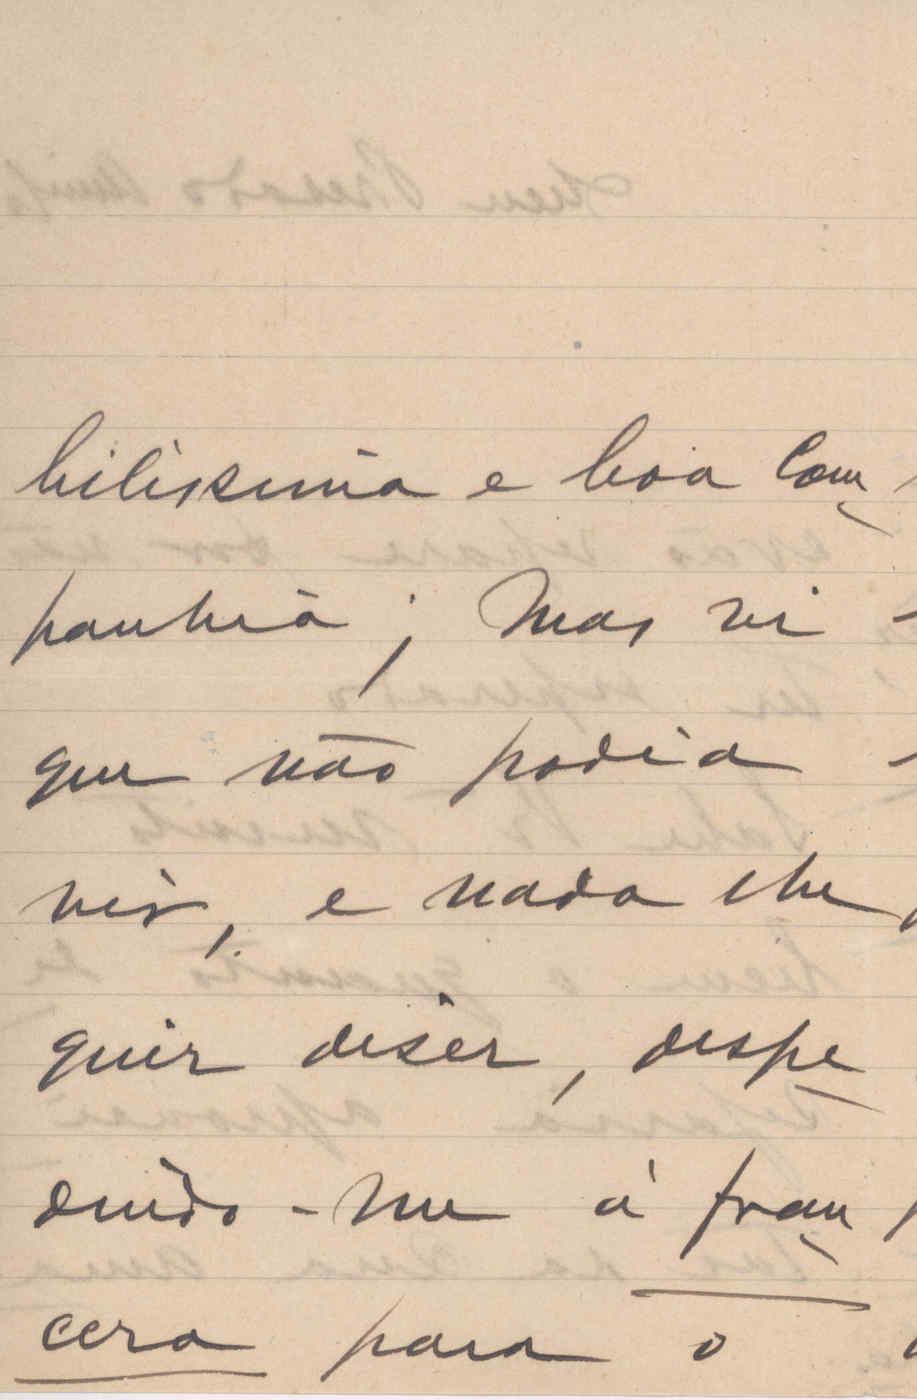 bilissima e boa Com-
panhia; Mas vi
que não podia
vir, e nada lhe
quir diser, despe-
dindo-me à fran-
cera para o